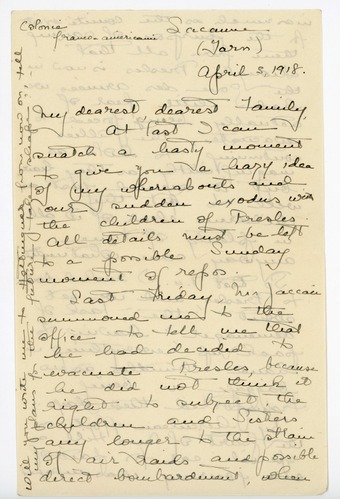 Colonie
Franco-americaine
Lacaune
(Tarn)
April 3, 1918.
My dearest, dearest Family,
At last I can
snatch a hasty moment
to give you a hazy idea
of my whereabouts and
our sudden exodus with
the children of Presles.
All details must be left
to a possible Sunday
moment of repos.
Last Friday Mr. Jaccaci
summoved me to the
office to tell me that
he had decided to
evacuate Presles, because
he did not think it
right to subject the
children and Sisters
any longer to the strain
of air raids and possible
direct bombardment, when
Will you write me to Hottinguer from now on, tell
my plans for the future